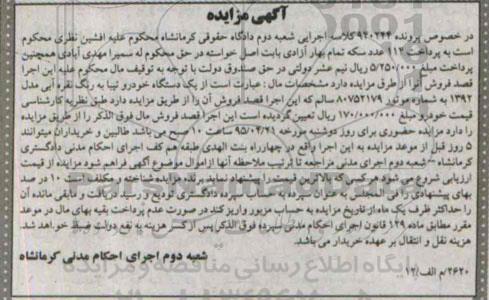 آگهی مزایده
در خصوص پرونده ۹۴۰۲۴۴ کلاسه اجرایی شعبه دوم دادگاه حقوقی کرمانشاه محکوم علیه افشین نظری محکوم
است به پرداخت ۱۱۴ عدد سکه تمام بهار آزادی بابت اصل خواسته در حق محکوم له سمیرا مهدی آبادی همچنین
پرداخت مبلغ ۵/۲۵۰/۰۰۰ ریال نیم عشر دولتی در حق صندوق دولت با توجه به توقیف مال محکوم علیه این اجرا
قصد فروش آنرا از طرق مزایده دارد مشخصات مال : عبارت است از یک دستگاه خودرو تیبا به رنگ نقره آبی مدل
۱۳۹۲ به شماره موتور ۸۰۷۵۲۱۷۹ سالم که این اجرا قصد فروش آن را از طریق مزایده دارد طبق نظریه کارشناسی
قیمت خودرو مبلغ ۱۷۰/۰۰۰/۰۰۰ ریال تعیین گردیده است این اجرا قصد فروش مال فوق الذکر را از طریق مزایده
را دارد مزایده حضوری برای روز دوشنبه مورخه ۹۵/۰۴/۲۱ ساعت ۱۰ صبح می باشد طالبین و خریداران میتوانند
۵ روز قبل از موعد مزایده به این اجرا واقع در چهارراه بنت الهدی طبقه هم کف اجرای احکام مدنی دادگستری
کرمانشاه – شعبه دوم اجرای مدنی مراجعه تا ترتیب ملاحظه آنها از اموال موضوع آگهی فراهم شود مزایده از قیمت
ارزیابی شروع می شود هر کسی که بالاترین قیمت را پیشنهاد نماید برنده مزایده شناخته و مکلف است ۱۰ در صد
بهای پیشنهادی را فی المجلس به عنوان سپرده به حساب سپرده دادگستری تودیع و رسید دریافت و مابقی مانده آن
را حداکثر ظرف یک ماه از تاریخ مزایده به حساب مزبور واریز کند در صورت عدم پرداخت بقیه بهای مال در موعد
مقرر مطابق ماده ۱۲۹ قانون اجرای احکام مدنی سپرده فوق الذکر پس از کسر هزینه به نفع دولت ضبط خواهد شد.
هزینه نقل و انتقال بر عهده خریدار می باشد.
شعبه دوم اجرای احکام مدنی کرمانشاه
۲۶۲۰/م الف/۱۲
پایگاه اطلاع رسانی مناقصه و مزایده